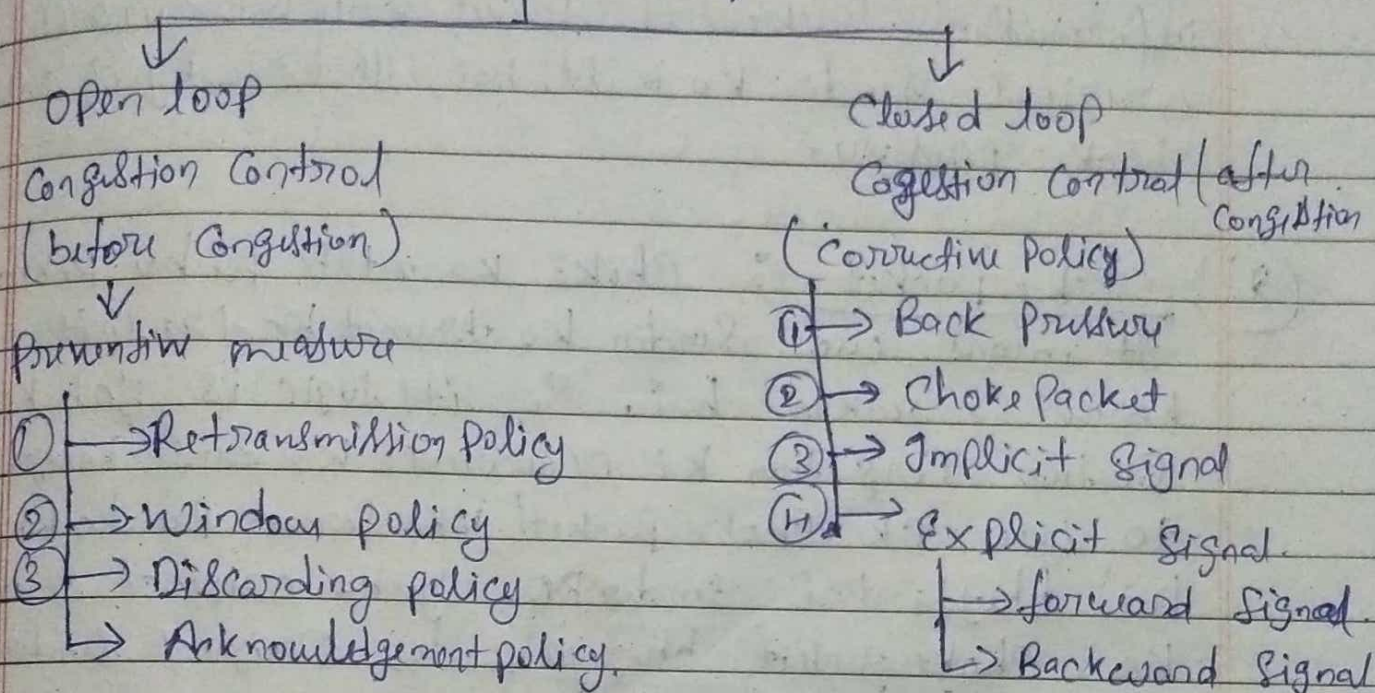 Open loop
Congestion Control
(before Congestion)
Preventive measure
① Retransmission Policy
② Window policy
③ Discarding policy
Acknowledgement policy.
Closed loop
Cogestion Control (after
Congestion
(Corrective Policy)
① Back Pressure
② Choke Packet
③ Implicit Signal
④ Explicit Signal.
forward Signal.
Backward Signal